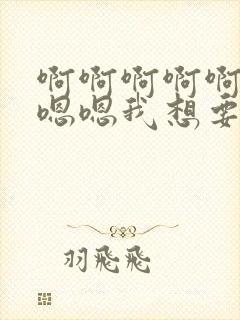 啊啊啊啊啊
嗯嗯我想要
羽飛飛